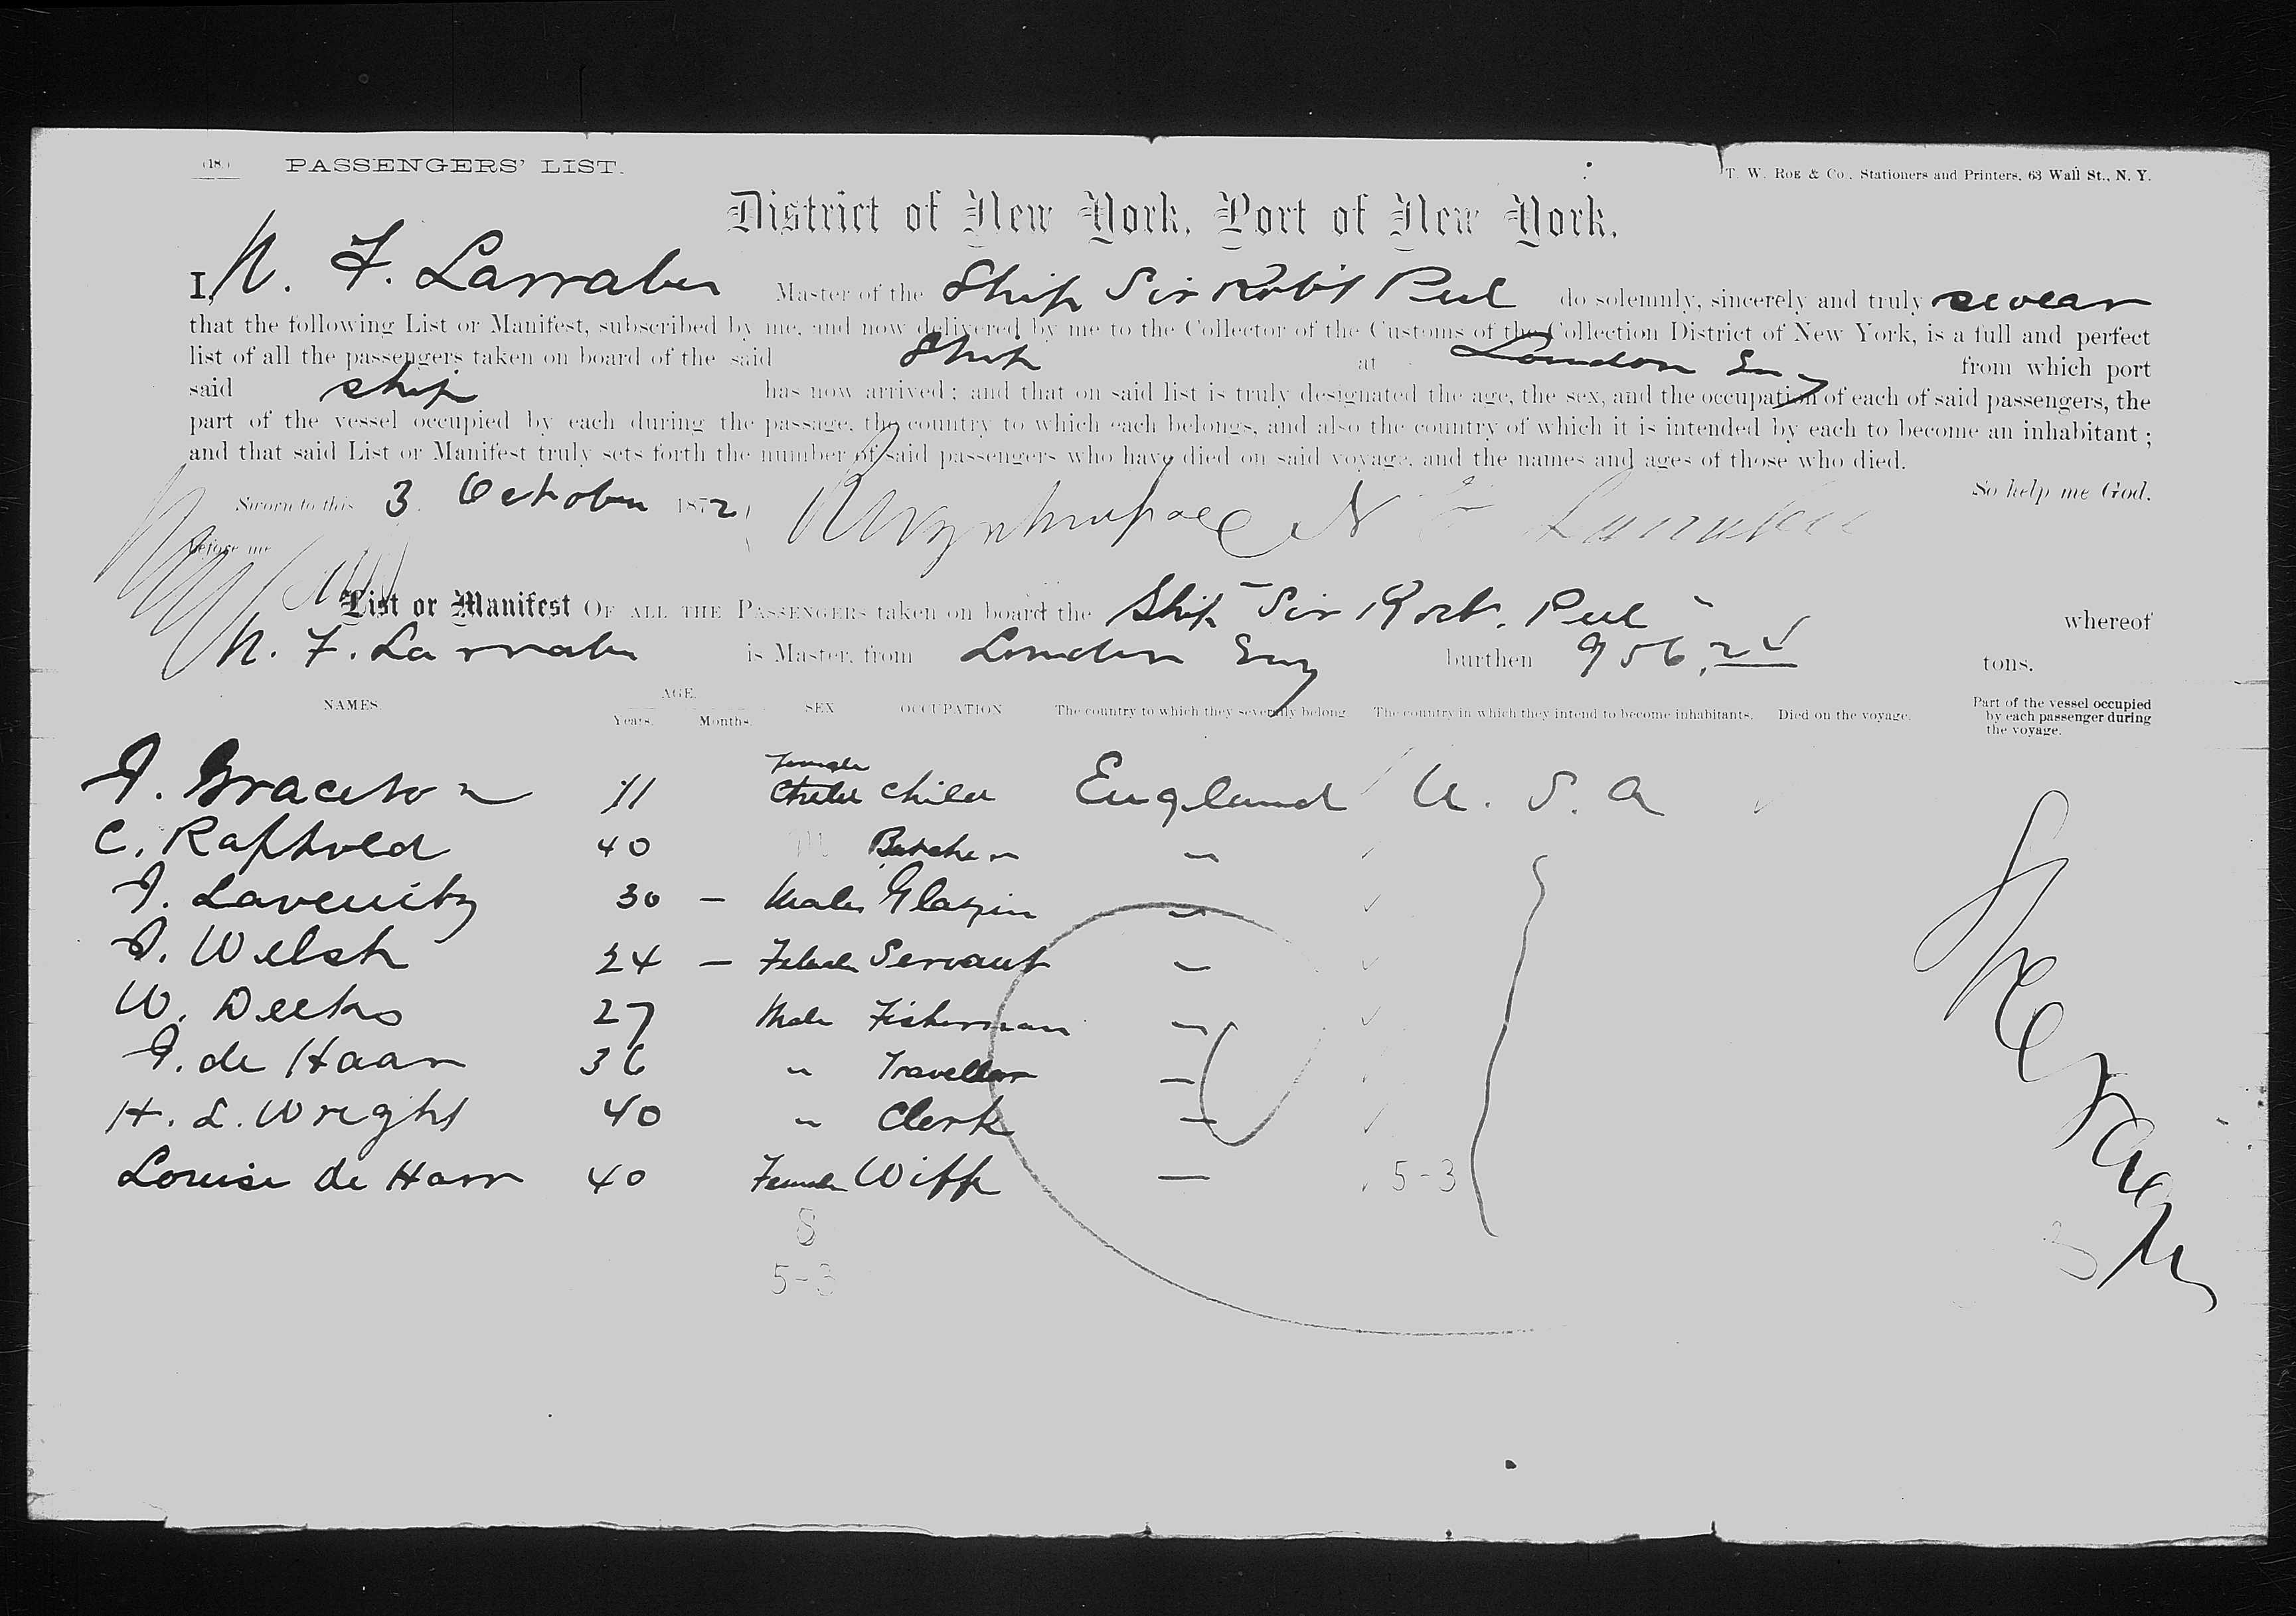 (18.) PASSENGERS' LIST. T. W. ROE & Co., Stationers and Printers, 63 Wall St., N. Y.
District of New York, Port of New York.
I, N. F. Larrabee Master of the Ship Sir Robt Peel do solemnly, sincerely and truly swear
that the following List or Manifest, subscribed by me, and now delivered by me to the Collector of the Customs of the Collection District of New York, is a full and perfect
list of all the passengers taken on board of the said Ship at London Eng from which port
said ship has now arrived; and that on said list is truly designated the age, the sex, and the occupation of each of said passengers, the
part of the vessel occupied by each during the passage, the country to which each belongs, and also the country of which it is intended by each to become an inhabitant;
and that said List or Manifest truly sets forth the number of said passengers who have died on said voyage, and the names and ages of those who died.
So help me God.
Sworn to this 3 October 1872 N F Larrabee
Before me
List or Manifest OF ALL THE PASSENGERS taken on board the Ship "Sir Robt. Peel" whereof
N. F. Larrabee is Master, from London Eng burthen 956 tons.
NAMES. AGE. Years. Months. SEX OCCUPATION The country to which they severally belong The country in which they intend to become inhabitants. Died on the voyage. Part of the vessel occupied by each passenger during the voyage.
Female
J. Graceton 11 Child Child England U. S. A
C. Raphold 40 M Butcher "
J. Lavenitz 30 - Male Glazier "
J. Welsh 24 - Female Servant "
W. Deeks 27 Male Fisherman "
J. de Haan 36 " Traveller "
H. L. Wright 40 " Clerk "
Louise de Haan 40 Female Wiff — 5-3
8
5-3
Steerage